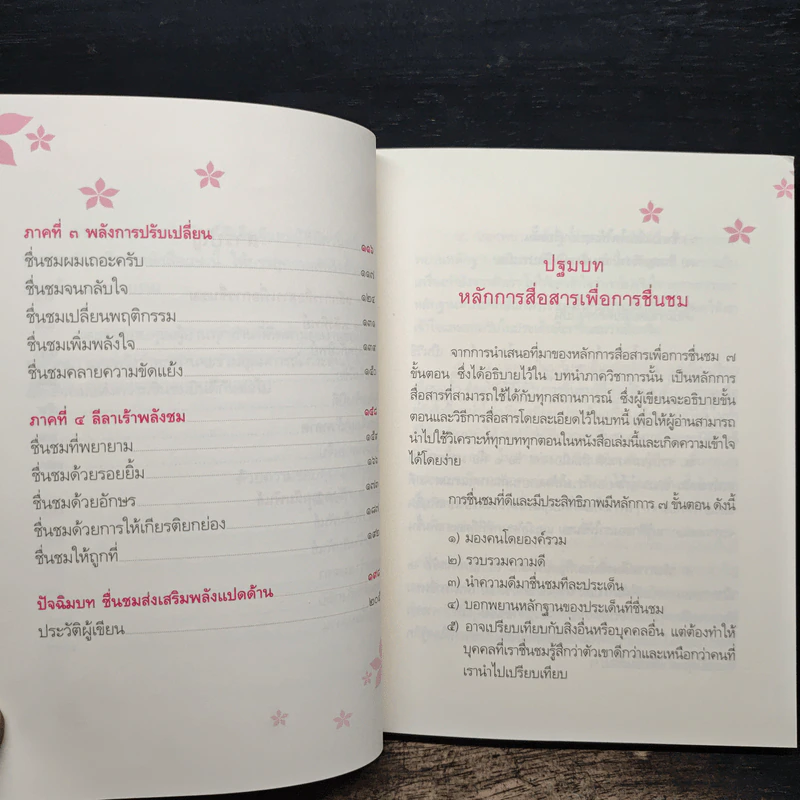 ภาคที่ ๓ พลังการปรับเปลี่ยน ๑๑๖
ชื่นชมผมเถอะครับ ๑๑๗
ชื่นชมจนกลับใจ ๑๒๔
ชื่นชมเปลี่ยนพฤติกรรม ๑๓๑
ชื่นชมเพิ่มพลังใจ ๑๓๔
ชื่นชมคลายความขัดแย้ง
ภาคที่ ๔ ลีลาเร้าพลังชม
ชื่นชมที่พยายาม
ชื่นชมด้วยรอยยิ้ม ๑๖๖
ชื่นชมด้วยอักษร ๑๗๓
ชื่นชมด้วยการให้เกียรติยกย่อง
ชื่นชมให้ถูกที่
ปัจฉิมบท ชื่นชมส่งเสริมพลังแปดด้าน
ประวัติผู้เขียน
ปฐมบท
หลักการสื่อสารเพื่อการชื่นชม
จากการนำเสนอที่มาของหลักการสื่อสารเพื่อการชื่นชม ๗
ขั้นตอน ซึ่งได้อธิบายไว้ใน บทนำภาควิชาการนั้น เป็นหลักการ
สื่อสารที่สามารถใช้ได้กับทุกสถานการณ์ ซึ่งผู้เขียนจะอธิบายขั้น
ตอนและวิธีการสื่อสารโดยละเอียดไว้ในบทนี้ เพื่อให้ผู้อ่านสามารถ
นำไปใช้วิเคราะห์ทุกบททุกตอนในหนังสือเล่มนี้และเกิดความเข้าใจ
ได้โดยง่าย
การชื่นชมที่ดีและมีประสิทธิภาพมีหลักการ ๗ ขั้นตอน ดังนี้
๑) มองคนโดยองค์รวม
๒) รวบรวมความดี
๓) นำความดีมาชื่นชมทีละประเด็น
๔) บอกพยานหลักฐานของประเด็นที่ชื่นชม
๕) อาจเปรียบเทียบกับสิ่งอื่นหรือบุคคลอื่น แต่ต้องทำให้
บุคคลที่เราชื่นชมรู้สึกว่าตัวเขาดีกว่าและเหนือกว่าคนที่
เรานำไปเปรียบเทียบ